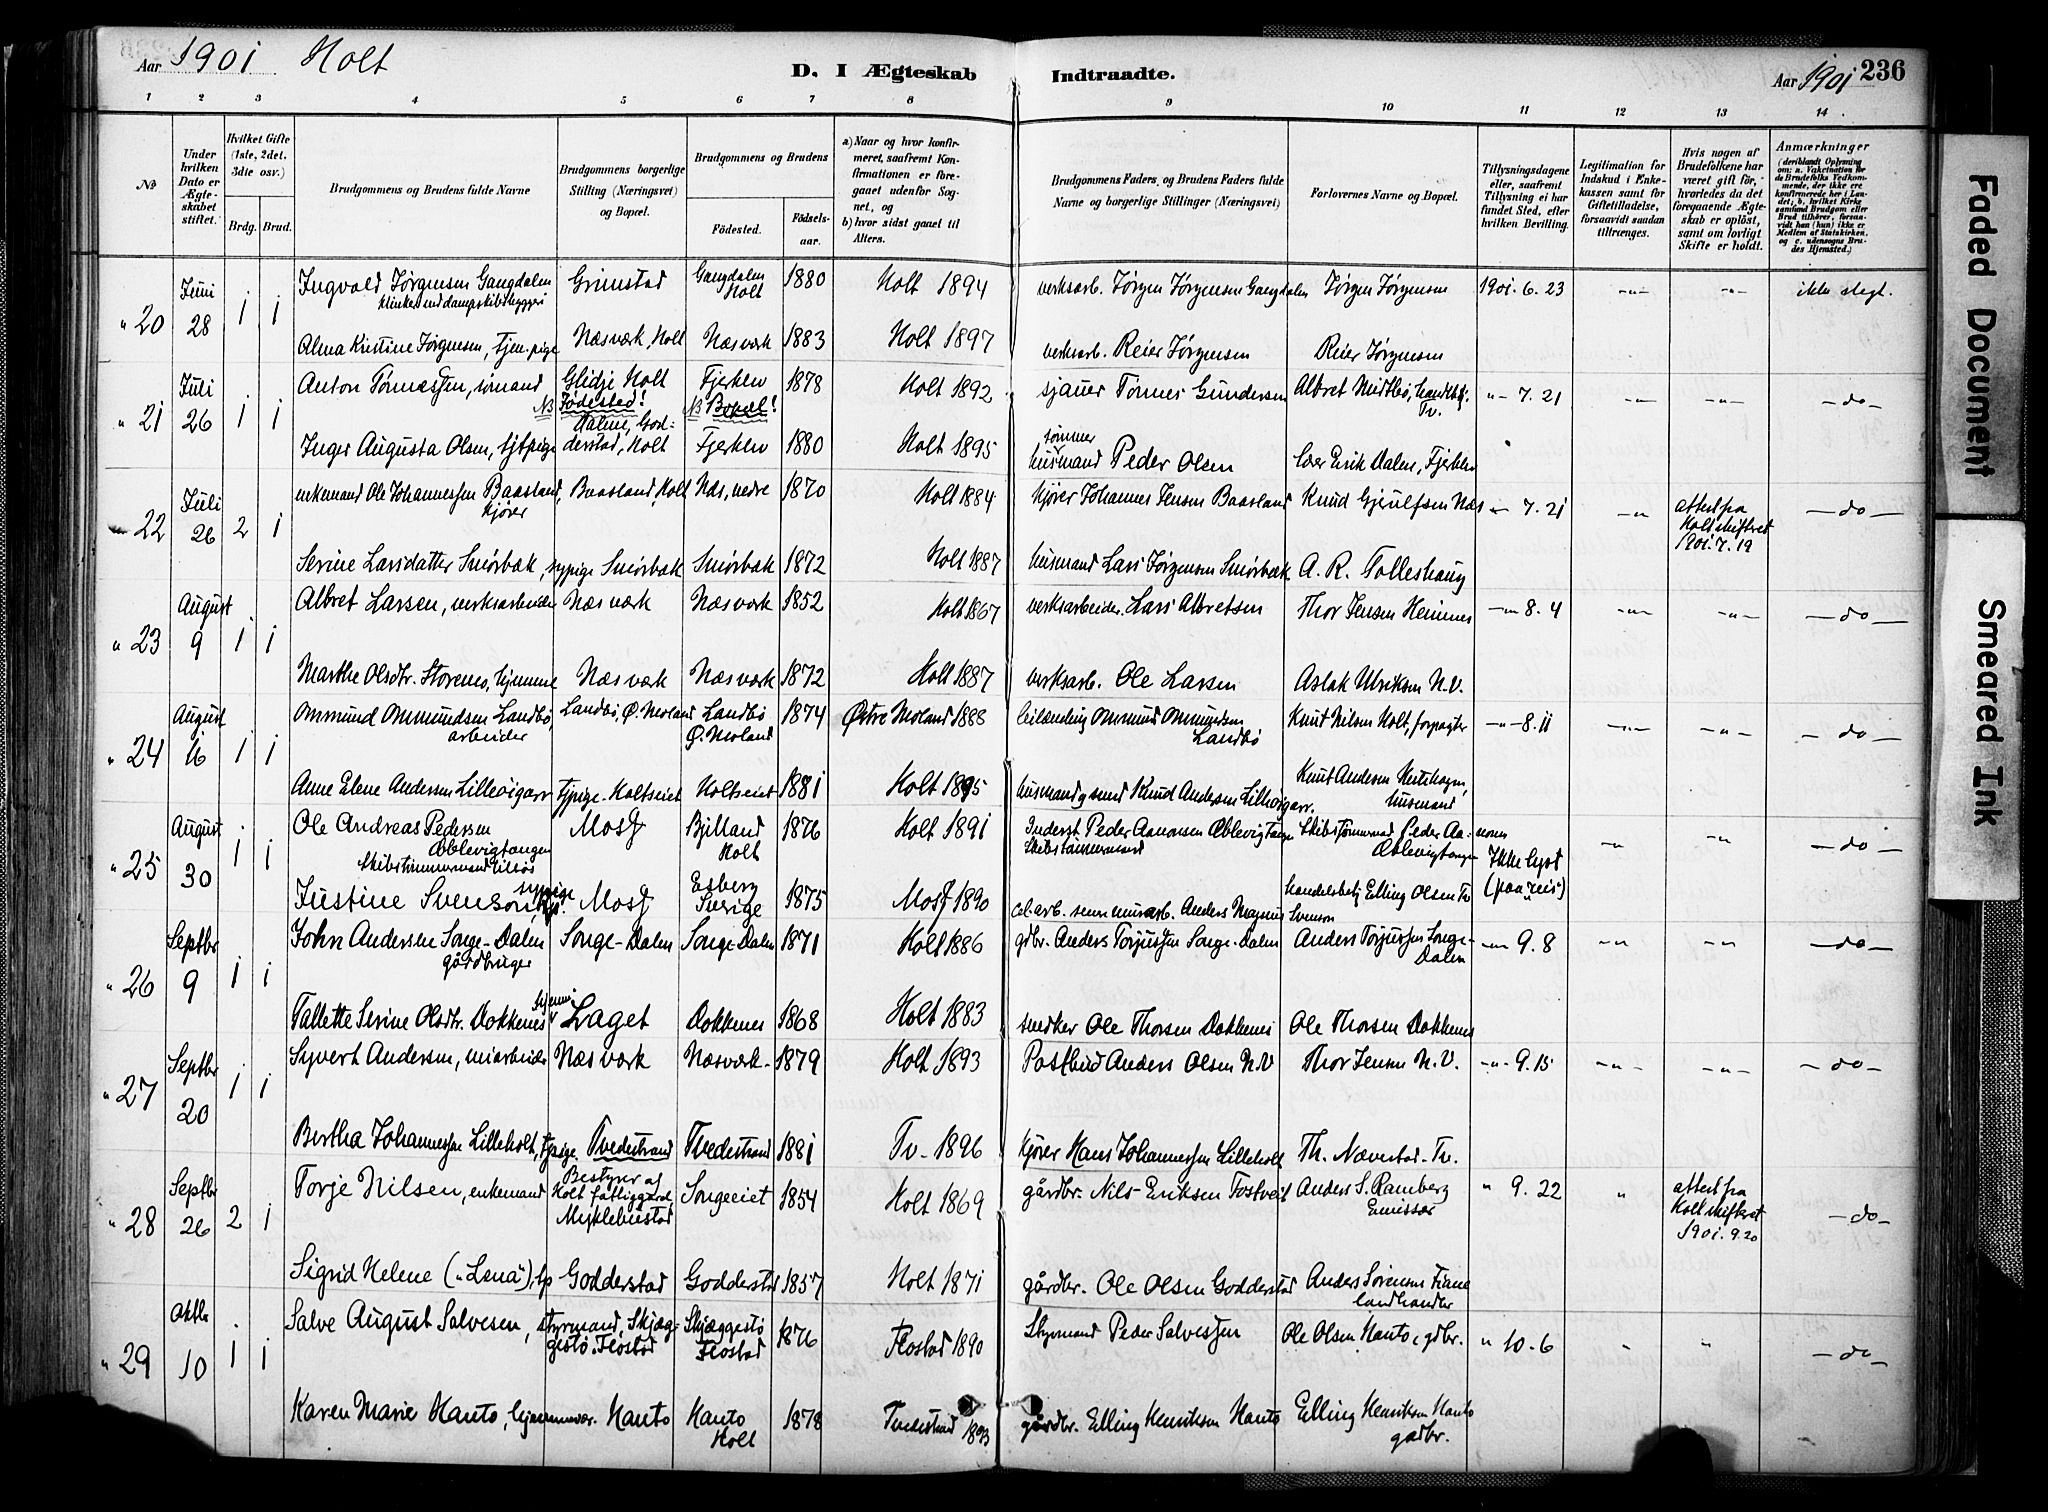 Aar 1901 Holt
D. I Ægteskab Indtraadte.
Aar 1901 236
1 2 3 4 5 6 7 8 9 10 11 12 13 14
№
Under hvilken Dato er Ægteskabet stiftet.
Hvilket Gifte (1ste, 2det, 3die osv.)
Brdg. Brud.
Brudgommens og Brudens fulde Navne
Brudgommens borgerlige Stilling (Næringsvei) og Bopæl.
Brudgommens og Brudens
Fødested. Fødselsaar.
a) Naar og hvor konfirmeret, saafremt Konfirmationen er foregaaet udenfor Sognet, og
b) hvor sidst gaaet til Alters.
Brudgommens Faders, og Brudens Faders fulde Navne og borgerlige Stillinger (Næringsvei)
Forlovernes Navne og Bopæl.
Tillysningsdagene eller, saafremt Tillysning ei har fundet Sted, efter hvilken Bevilling.
Legitimation for Indskud i Enkekassen samt for Giftetilladelse, forsaavidt saadan tiltrænges.
Hvis nogen af Brudefolkene har været gift før, hvorledes da det foregaaende Ægteskab er opløst, samt om lovligt Skifte er holdt.
Anmærkninger
20 Juni 28 1 1 Ingvald Jørgensen Gangdalen Grimstad Gangdalen Holt 1880 Holt 1894 verksarb. Jørgen Jørgensen Gangdalen Jørgen Jørgensen 1901. 6. 23 -"- -"- ikke slegt.
Alma Kristine Jørgensen, tjen.pige Næsværk, Holt Næsværk 1883 Holt 1897 verksarb. Reier Jørgensen Reier Jørgensen
21 Juli 26 1 1 Anton Tønnessen, sømand Holt Fjerklev 1878 Holt 1892 sjauer Tønnes Gundersen Albret Midtbø, Tv. -"- 7. 21 -"- -"- -do-
NB Fødested! NB Bopæl!
Inger Augusta Olsen, Dalene, Godderstad, Holt Fjerklev 1880 Holt 1895 tømmer husmand Peder Olsen Erik Dalen, Fjerklev
22 Juli 26 2 1 enkemand Ole Johannessen Baasland, kjører Baasland, Holt Næs, nedre 1870 Holt 1884 kjører Johannes Jensen Baasland Knud Gjeulfsen Næs -"- 7. 21 -"- attest fra Holt skifteret 1901. 7. 19 -do-
Serine Larsdatter Smørbæk, sypige Smørbæk Smørbæk 1872 Holt 1887 husmand Lars Jørgensen Smørbæk A. R. Tolleshaug
23 August 9 1 1 Albret Larsen, verksarbeider Næsværk Næsværk 1852 Holt 1867 verksarbeider Lars Albretsen Thor Jensen Heimnes -"- 8. 4 -"- -"- -do-
Marthe Olsdtr. Storenes, hjemme Næsværk Næsværk 1872 Holt 1887 verksarb. Ole Larsen Aslak Ulriksen N.V.
24 August 16 1 1 Ommund Ommundsen Landbø, arbeider Landbø, Ø. Moland Landbø Ø. Moland 1874 Østre Moland 1888 leilænding Ommund Ommundsen Landbø Knut Nilsen Holt, forpagter -"- 8. 11 -"- -"- -do-
Anne Elene Andersen tjpige. Holtseiet Holtseiet 1881 Holt 1895 husmand g smed Knud Andersen Knut Andersen husmand
25 August 30 1 1 Ole Andreas Pedersen Æblevigtangen Moss Bjelland Holt 1876 Holt 1891 Inderst Peder Aanonsen Æblevigtangen Skibstømmermand Peder Aanonsen Æblevigtangen Ikke lyst (paa "reis") -"- -"- -do-
Justine Svenson sypige Moss Esberg Sverige 1875 Moss 1890 Anders Magnus Svenson handelsbetj Elling Olsen Tv
26 Septbr 9 1 1 John Andersen Songe-Dalen gårdbruger Songe-Dalen Songe-Dalen 1871 Holt 1886 gdbr. Anders Torjussen Songe-Dalen Anders Torjussen Songe-Dalen -"- 9. 8 -"- -"- -do-
Tallette Serine Olsdtr. Dokkenes Laget Dokkenes 1868 Holt 1883 snedker Ole Thorsen Dokkenes Ole Thorsen Dokkenes
27 Septbr 20 1 1 Syvert Andersen, Næsværk Næsværk 1879 Holt 1893 Postbud Anders Olsen N.V Thor Jensen N.V. -"- 9. 15 -"- -"- -do-
Bertha Johannessen Lilleholt, tjpige. Tvedestrand Tvedestrand 1881 Tv. 1896 kjører Hans Johannessen Lilleholt Th. Nævestad. Tv.
28 Septbr 26 2 1 Torje Nilsen, enkemand Bestyrer af Holt fattiggård Myklebustad Songeeiet 1854 Holt 1869 gårdbr. Nils Eriksen Tostveit Anders S. Ramberg Emissær " 9. 22 " attest fra Holt skifteret 1901. 9. 20 -do-
Sigrid Helene ("Lena"), Godderstad Godderstad 1857 Holt 1871 gårdbr. Ole Olsen Godderstad Anders Sørensen Fiane landhandler
29 Oktbr 10 1 1 Salve August Salvesen, styrmand, Skjæggestø. Flostad Skjæggestø Flostad 1876 Flostad 1890 Styrmand Peder Salvessen Ole Olsen Hanto, gdbr. " 10. 6 " " -do-
Karen Marie Hanto, hjemmevær. Hanto Hanto Holt 1878 Tvedestrand 1893 gårdbr. Elling Henriksen Hanto Elling Henriksen Hanto gadbr.
Faded Document
Smeared Ink